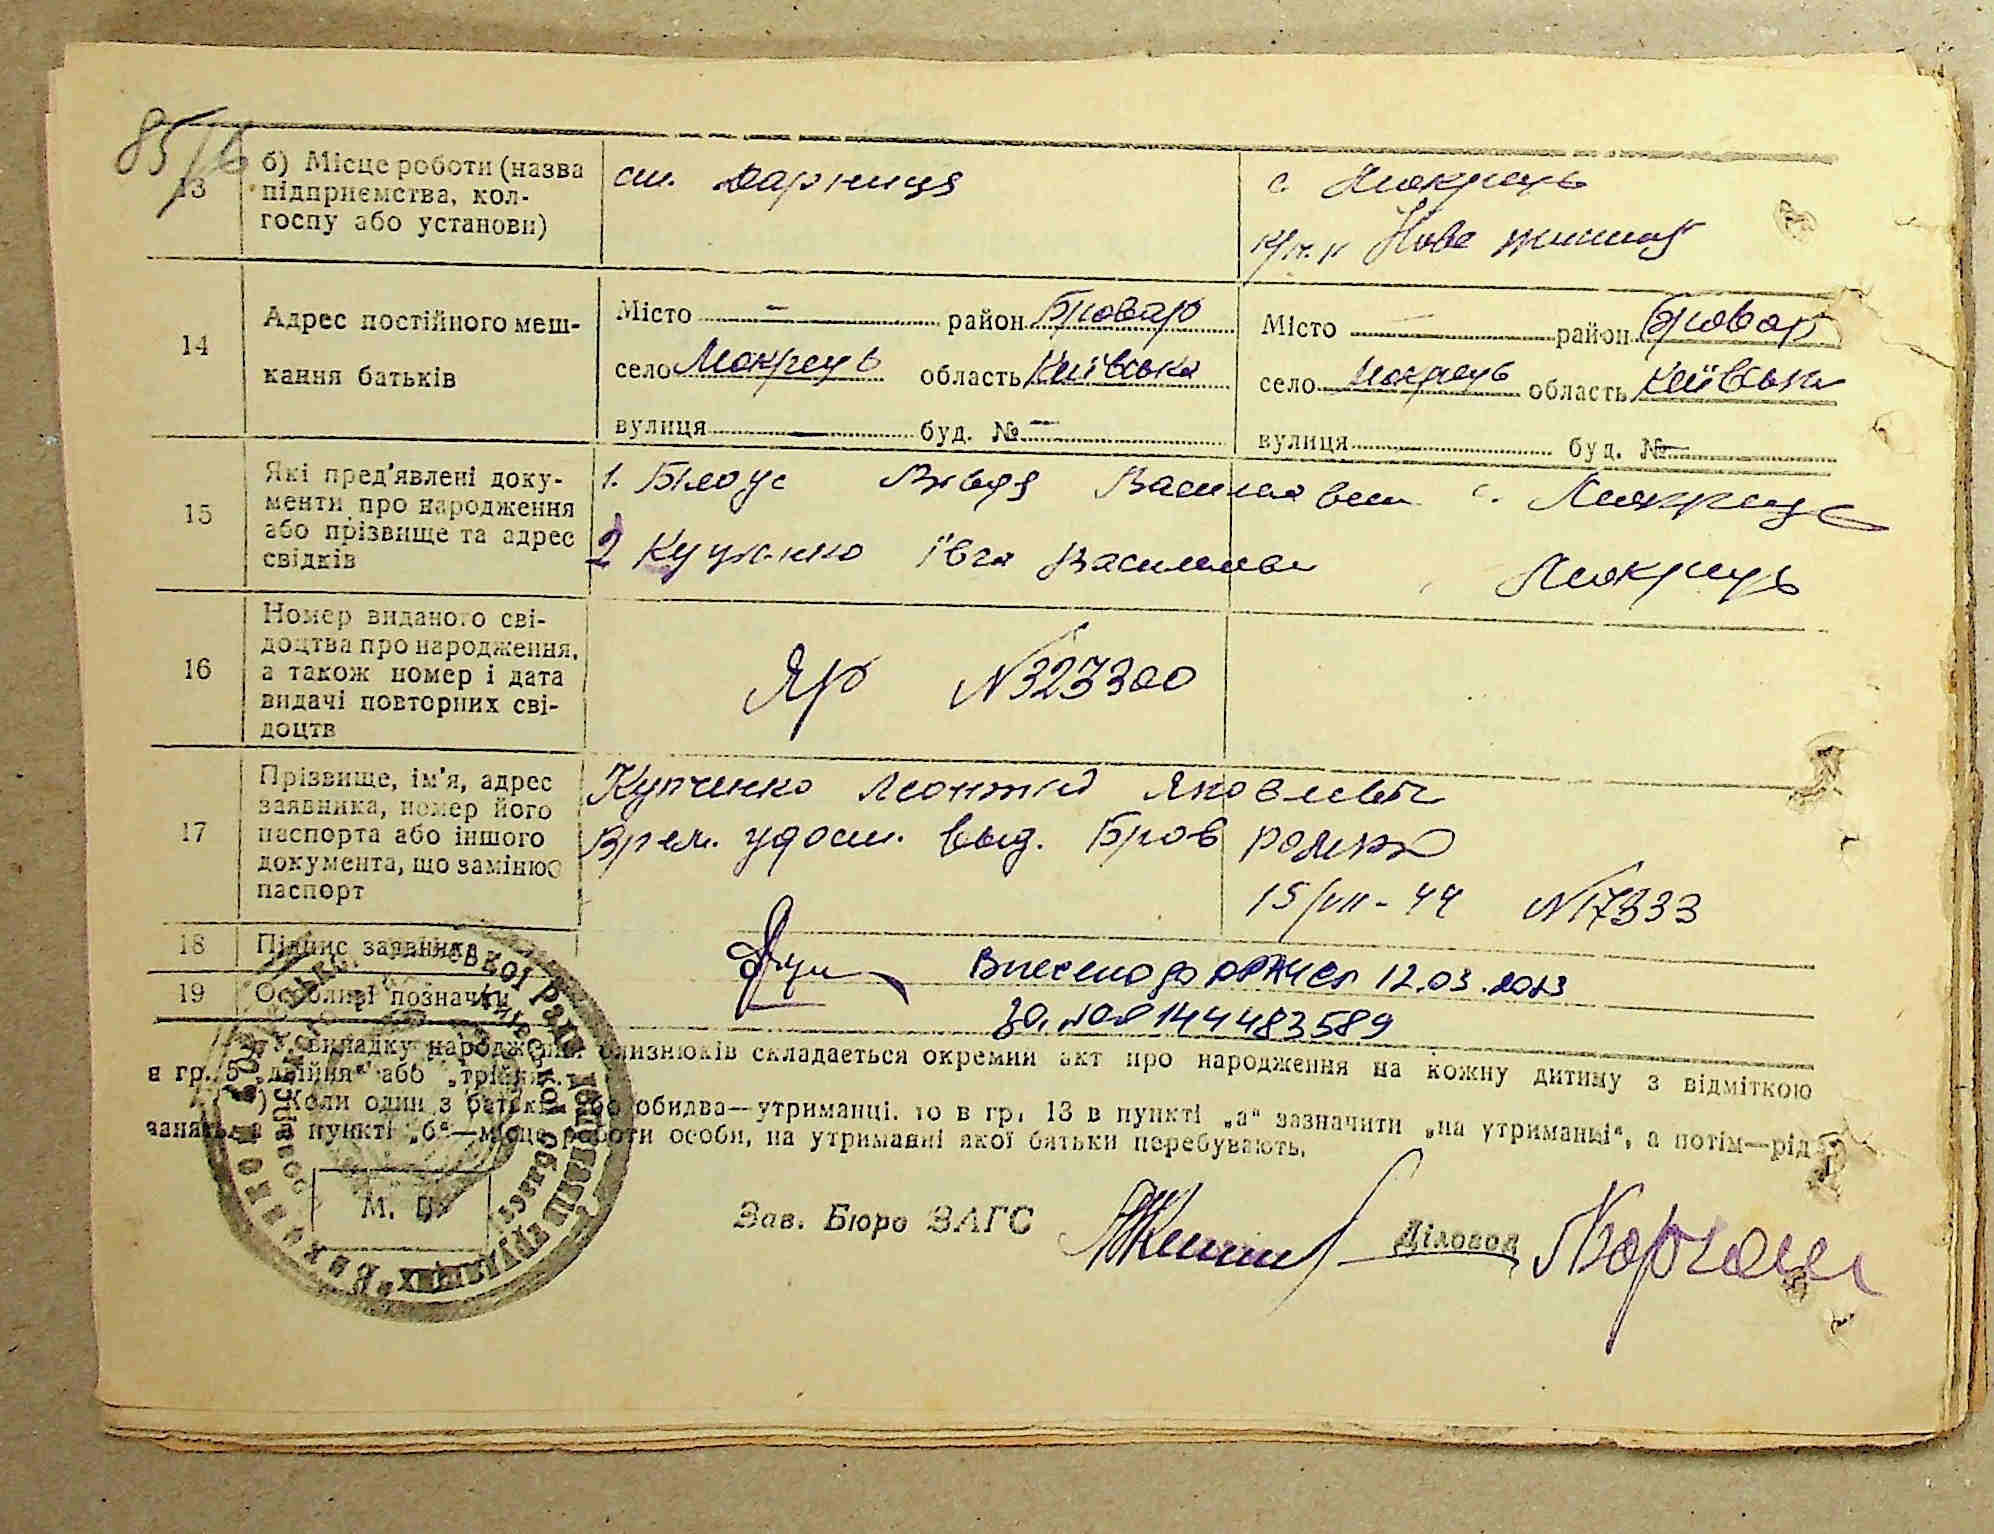 85/б
13 б) Місце роботи (назва підприємства, колгоспу або установи)
ст. Дарниця
с. Мокрець
Нове життя
14 Адрес постійного мешкання батьків
Місто — район Бровар
село Мокрець область Київська
вулиця — буд. № —
Місто — район Бровар
село Мокрець область Київська
вулиця буд. № —
15 Які пред'явлені документи про народження або прізвище та адрес свідків
1. Білоус Василівна с. Мокрець
2 Ївга Василівна Мокрець
16 Номер виданого свідоцтва про народження, а також номер і дата видачі повторних свідоцтв
ЯР №323300
17 Прізвище, ім'я, адрес заявника, номер його паспорта або іншого документа, що замінює паспорт
Купченко Леонтій Яковлевич
Врем. удост. выд. Бров
15/VII-44 №17333
18 Підпис заявника
19 Особливі позначки
Внесено до ДРАЦСГ 12.03.2013
за №00144483589
У випадку народження близнюків складається окремий акт про народження на кожну дитину з відміткою
в гр. 5 „двійня" або „трійня".
Коли один з батьків або обидва—утриманці, то в гр. 13 в пункті „а" зазначити „на утриманні", а потім—рід
занять, а в пункті „б"—місце роботи особи, на утриманні якої батьки перебувають.
М. П.
Зав. Бюро ЗАГС
Діловод